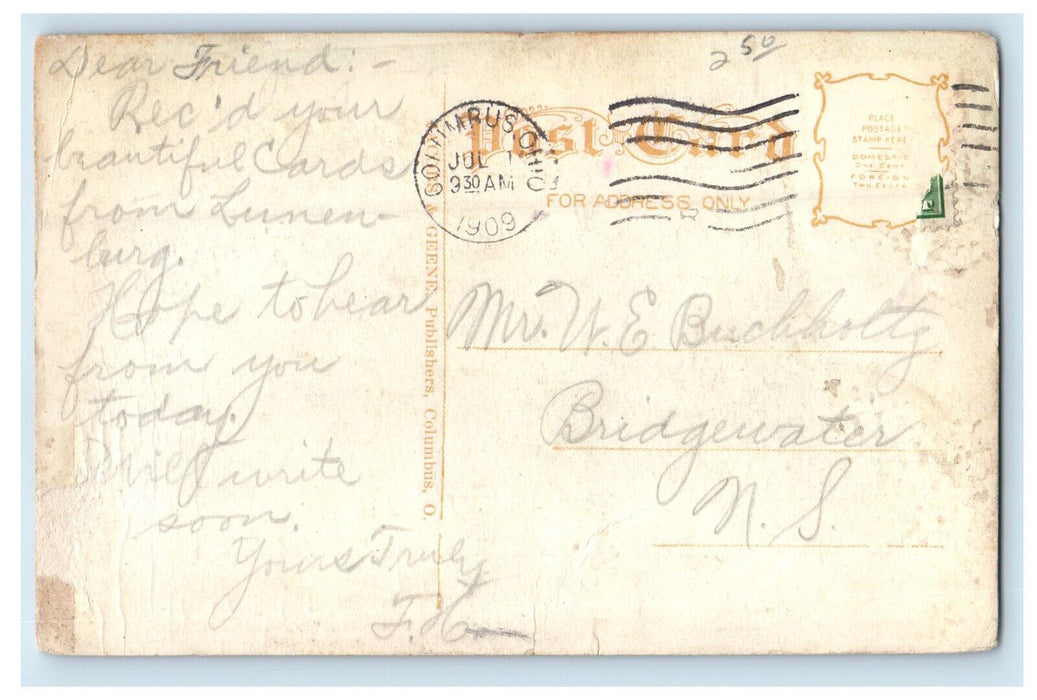 Dear Friend:-
Rec'd your
beautiful Cards
from Lunen-
burg.
Hope to hear
from you
today.
Will write
soon.
Yours Truly
2 50
Post Card
FOR ADDRESS ONLY
COLUMBUS, OHIO
JUL 1
9 30 AM
1909
PLACE
POSTAGE
STAMP HERE
DOMESTIC
ONE CENT
FOREIGN
TWO CENTS
& GEENE, Publishers, Columbus, O.
Mr. W E Buchholtz
Bridgewater
N. S.